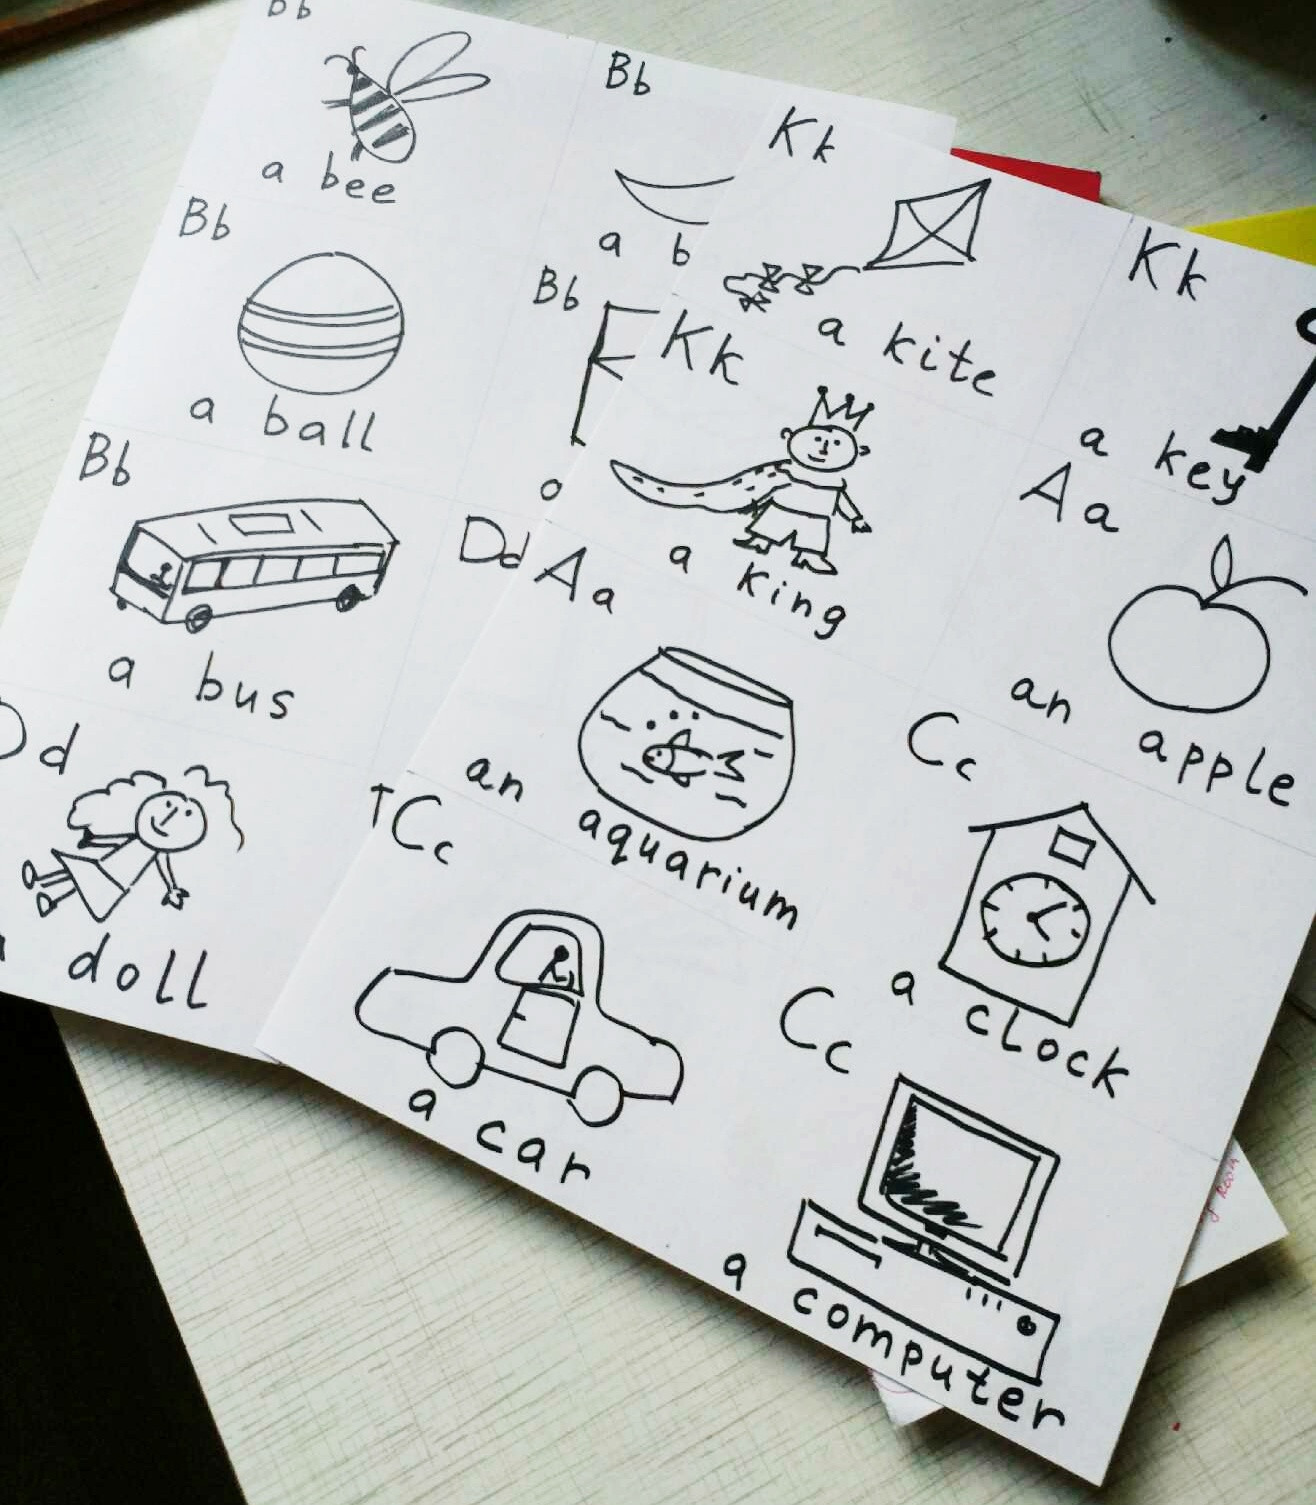 Bb
a bee
Bb
a b
Bb
a ball
Bb
Bb
a bus
Dd
Dd
a doll
Kk
a kite
Kk
a key
Kk
a king
Aa
an apple
Aa
an aquarium
Cc
a clock
Cc
a car
Cc
a computer